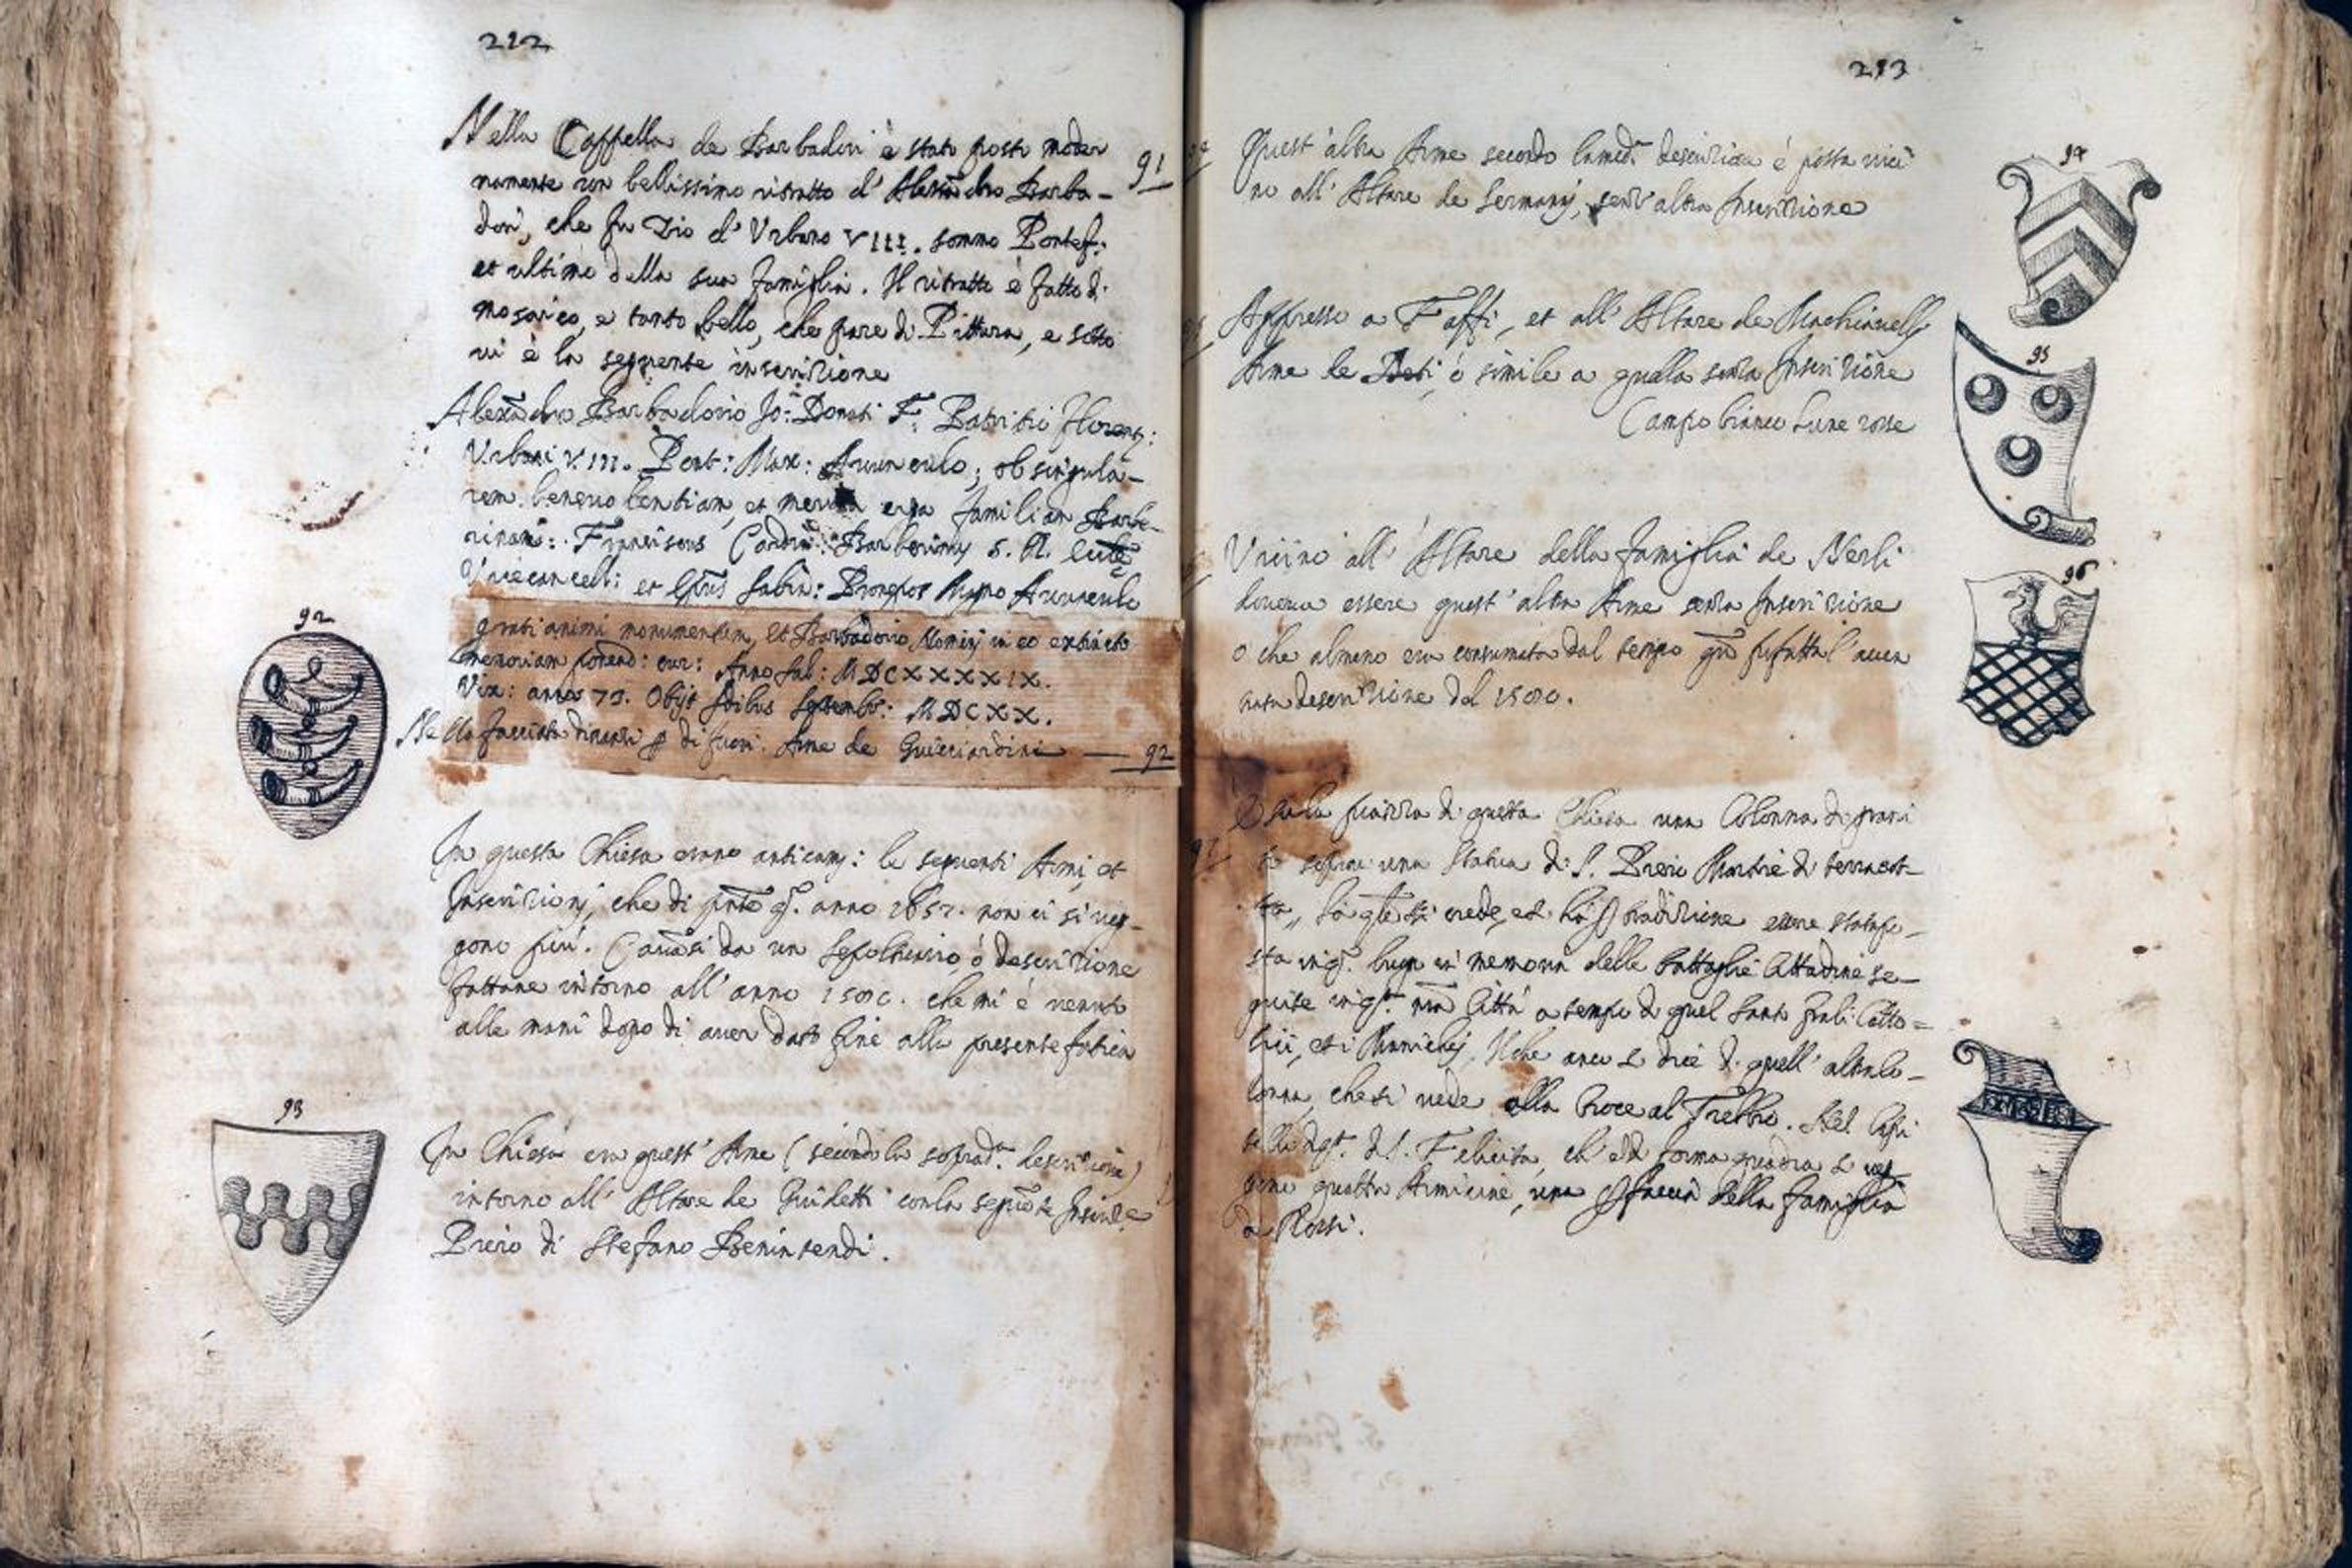 212
Nella Cappella de Barbadori è stato posto moder
namente un bellissimo ritratto d' Alessãdro Barba-
dori, che fu Zio d' Urbano VIII. sommo Pontef:
et ultimo della sua famiglia. Il ritratto è fatto di
mosaico, e tanto bello, che pare di Pittura, e sotto
vi è la seguente inscrizione
91
Alexãdro Barbadorio Jo: Donati F. Patritio Florent:
Urbani VIII. Pont: Max: Avunculo; ob singula-
rem benevolentiam, et merita erga familiam Barbe-
rinam: Franciscus Barberinus S. R.
Vicecancell: et Sabin: Pronepos Magno Avunculo
grati animi monumentum, et Barbadorio Nominj in eo extincto
memoriam Anno Sal: MDCXXXXIX.
Vix: annos 73. Obijt Idibus Septemb: MDCXX.
Nella facciata dinanzi di fuori. Arme de Guicciardini — 92
92
In questa Chiesa erano anticam: le seguenti Armi, et
Inscrizionj, che di pñte anno 1657. non ci si veg-
gono piú. Cavãsi da un Sepoltuario, ó descrizione
fattane intorno all' anno 1500. che mi è venuto
alle mani dopo di aver dato fine alla presente fatica
93
In Chiesa era quest' Arme (secondo la soprad.ª descrizione)
intorno all' Altare de Guidetti con la seguẽte
Piero di Stefano Benintendi.
213
Quest' altra Arme secondo la med.ª descrizione é posta vici
no all' Altare de senz' altra Inscrizione
94
Appresso a Taffi, et all' Altare de Machiavelli
Arme de é simile a quella senza Inscrizione
Campo bianco Lune rosse
95
Vicino all' Altare della famiglia de Nerli
doveva essere quest' altra Arme senza Inscrizione
o che almeno era consumata dal tempo fu fatta l' accen
nata descrizione del 1500.
96
97
E su la piazza di questa Chiesa una Colonna di grani
to sopravi una Statua di S. Piero Martire di terracot-
ta, si crede, ed há tradizione essere stata po-
sta in memoria delle battaglie Cittadine se-
guite Città a tempo di quel Santo frali Catto=
lici, et i Manichej. Il che anco si dice di quell' altra Co-
lonna, che si vede alla Croce al Trebbio. Nel Capi
tello di S. Felicita, ch' é di forma quadra si veg
gono quattro Armicine, una faccia della famiglia
de Rossi.